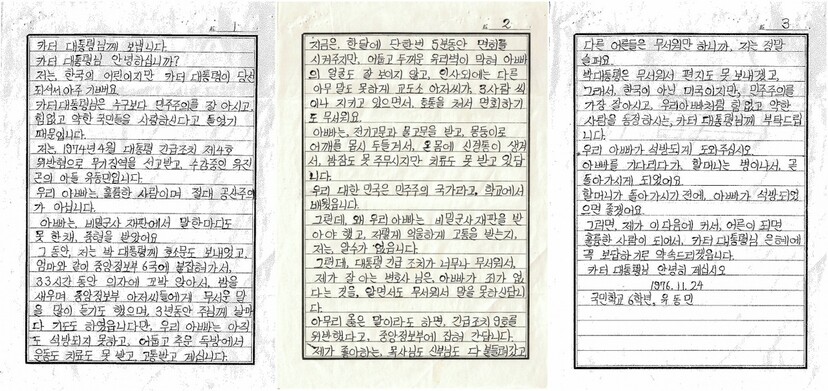 № 1
카터 대통령님께 보냅니다.
카터 대통령님 안녕하십니까?
저는, 한국의 어린이지만 카터 대통령이 당선
되셔서 아주 기뻐요.
카터 대통령님은 누구보다 민주주의를 잘 아시고,
힘없고 약한 국민들을 사랑하신다고 들었기
때문입니다.
저는 1974년 4월 대통령 긴급조치 제4호
위반혐으로 무기징역을 선고받고, 수감중인 유진
곤의 아들 유동민입니다.
우리 아빠는, 훌륭한 사람이며 절대 공산주의
가 아닙니다.
아빠는, 비밀군사 재판에서 말한마디도
못 한채, 중형을 받았어요
그 동안, 저는 박 대통령께 호소문도 보내었고,
엄마와 같이 중앙정보부 6국에 붙잡혀가서,
33시간 동안 의자에 꼬박 앉아서, 밤을
새우며 중앙정보부 아저씨들에게 무서운 말
을 많이 듣기도 했으며, 3년동안 주님께 날마
다 기도도 하였읍니다만, 우리 아빠는 아직
도 석방되지 못하고, 어둡고 추운 독방에서
운동도 치료도 못 받고, 고통받고 계십니다.
№ 2
지금은, 한달에 단한번 5분동안 면회를
시켜주지만, 어둡고 두꺼운 유리벽이 막혀 아빠
의 얼굴도 잘 보이지 않고, 인사외에는 다른
아무 말도 못하게 교도소 아저씨가, 3사람 씩
이나 지키고 있으면서, 호통을 쳐서 면회하기
도 무서워요.
아빠는, 전기고문과 물고문을 받고, 몽둥이로
어깨를 몹시 두들겨서, 온몸에 신경통이 생겨
서, 밤잠도 못 주무시지만 치료도 못 받고 있답
니다.
우리 대한 민국은 민주주의 국가라고, 학교에서
배웠읍니다.
그런데, 왜 우리 아빠는, 비밀군사재판을 받
아야 했고, 저렇게 억울하게 고통을 받는지,
저는, 알수가 없읍니다.
그런데, 대통령 긴급 조치가 너무나 무서워서,
제가 잘 아는 변호사 님은, 아빠가 죄가 없
다는 것을, 알면서도 무서워서 말을 못하신답니
다.
아무리 옳은 말이라도 하면, 긴급조치 9호를
위반했다고, 중앙정보부에 잡혀 간답니다.
제가 좋아하는, 목사님도 신부님도 다 붙들려갔고
№ 3
다른 어른들은 무서워만 하니까, 저는 정말
슬퍼요.
박대통령은 무서워서 편지도 못 보내겠고,
그래서, 한국이 아닌 미국이지만, 민주주의를
가장 잘아시고, 우리아빠처럼 힘없고 약한
사람을 동정하시는, 카터 대통령님께 부탁드립
니다.
우리 아빠가 석방되게 도와주십시오.
아빠를 기다리다가, 할머니는 병이나서, 곧
돌아가시게 되었어요.
할머니가 돌아가시기전에, 아빠가 석방되었
으면 좋겠어요.
그러면, 제가 이 다음에 커서, 어른이 되면
훌륭한 사람이 되어서, 카터 대통령님 은혜에
꼭 보답하기로 약속드리겠읍니다.
카터 대통령님 안녕히 계십시오
1976. 11. 24
국민학교 6학년, 유 동 민